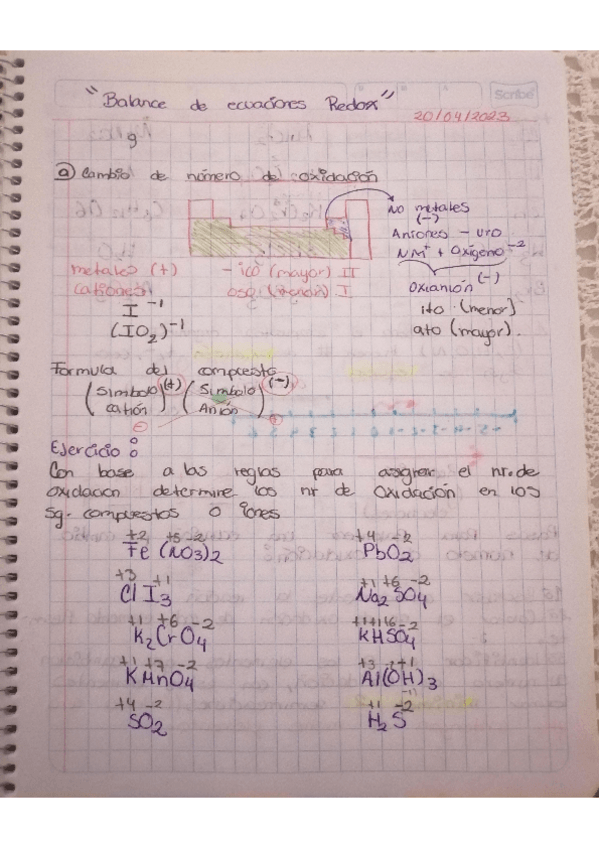 Scribe
"Balance de ecuaciones Redox"
20/04/2023
g
a) Cambio de número de oxidación
No metales
(-)
Aniones - uro
NM+ + Oxígeno-2
Oxianión (-)
ito (menor)
ato (mayor).
metales (+) - ico (mayor) II
cationes I
I-1
(IO2)-1
Formula del compuesto
(Simbolo catión)(+) (Simbolo Anión)(-)
Ejercicio:
Con base a las reglas para asignar el nr. de
oxidacion determine los nr de Oxidación en los
sg. compuestos o iones
+2 +5 -2
Fe (NO3)2
+4 -2
PbO2
+3 +1
Cl I3
+1 +6 -2
Na2 SO4
+1 +6 -2
K2CrO4
+1+1+6-2
KHSO4
+1 +7 -2
KMnO4
+3 -2+1
Al(OH)3
+4 -2
SO2
+1 -2
H2S